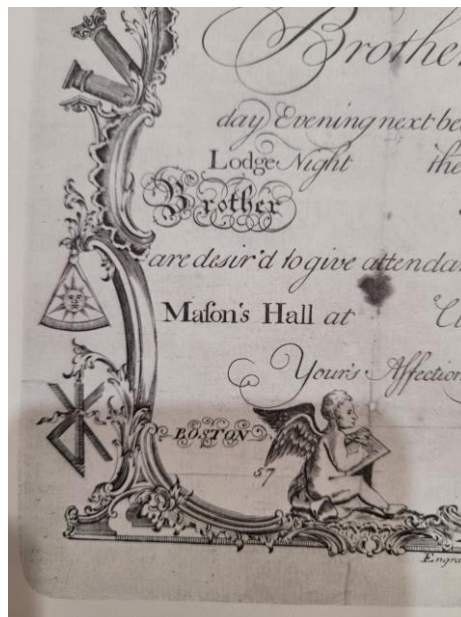 Brother
day Evening next be
Lodge Night the
Brother
are desir'd to give attenda
Maſon's Hall at
Your's Affection
BOSTON
57
Engra